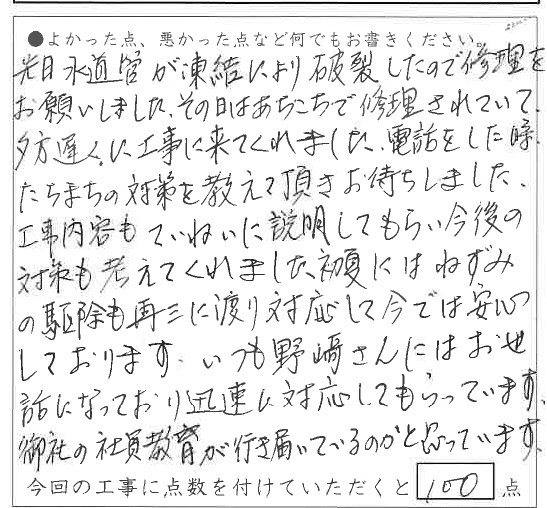 ●よかった点、悪かった点など何でもお書きください。
先日水道管が凍結により破裂したので修理を
お願いしました、その日はあちこちで修理されていて、
夕方遅くに工事に来てくれました、電話をした時、
たちまちの対策を教えて頂きお待ちしました、
工事内容もていねいに説明してもらい今後の
対策も考えてくれました、初夏にはねずみ
の駆除も再三に渡り対応して今では安心
しております、いつも野崎さんにはお世
話になっており迅速に対応してもらっています、
御社の社員教育が行き届いているのかと思っています、
今回の工事に点数を付けていただくと 100 点